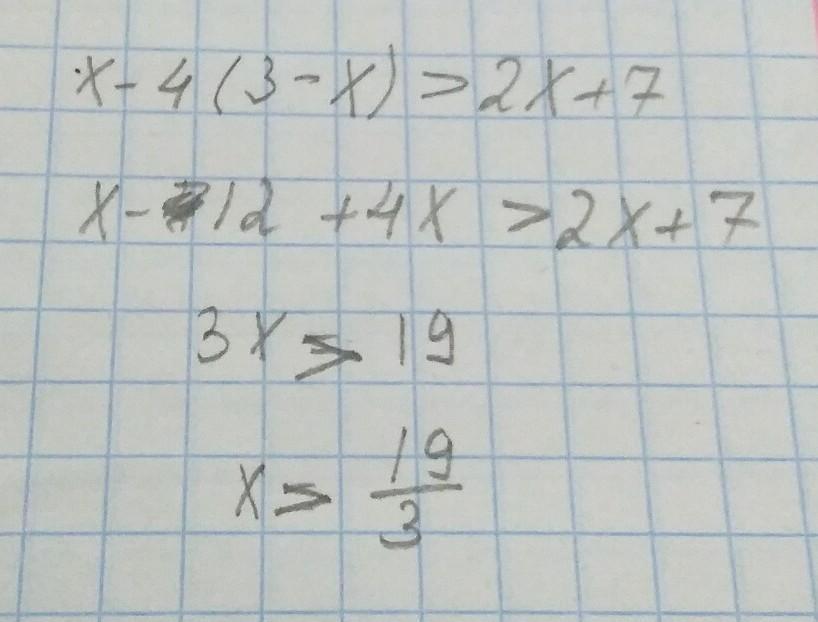 x - 4(3 - x) > 2x + 7
x - 12 + 4x > 2x + 7
3x > 19
x > 19/3